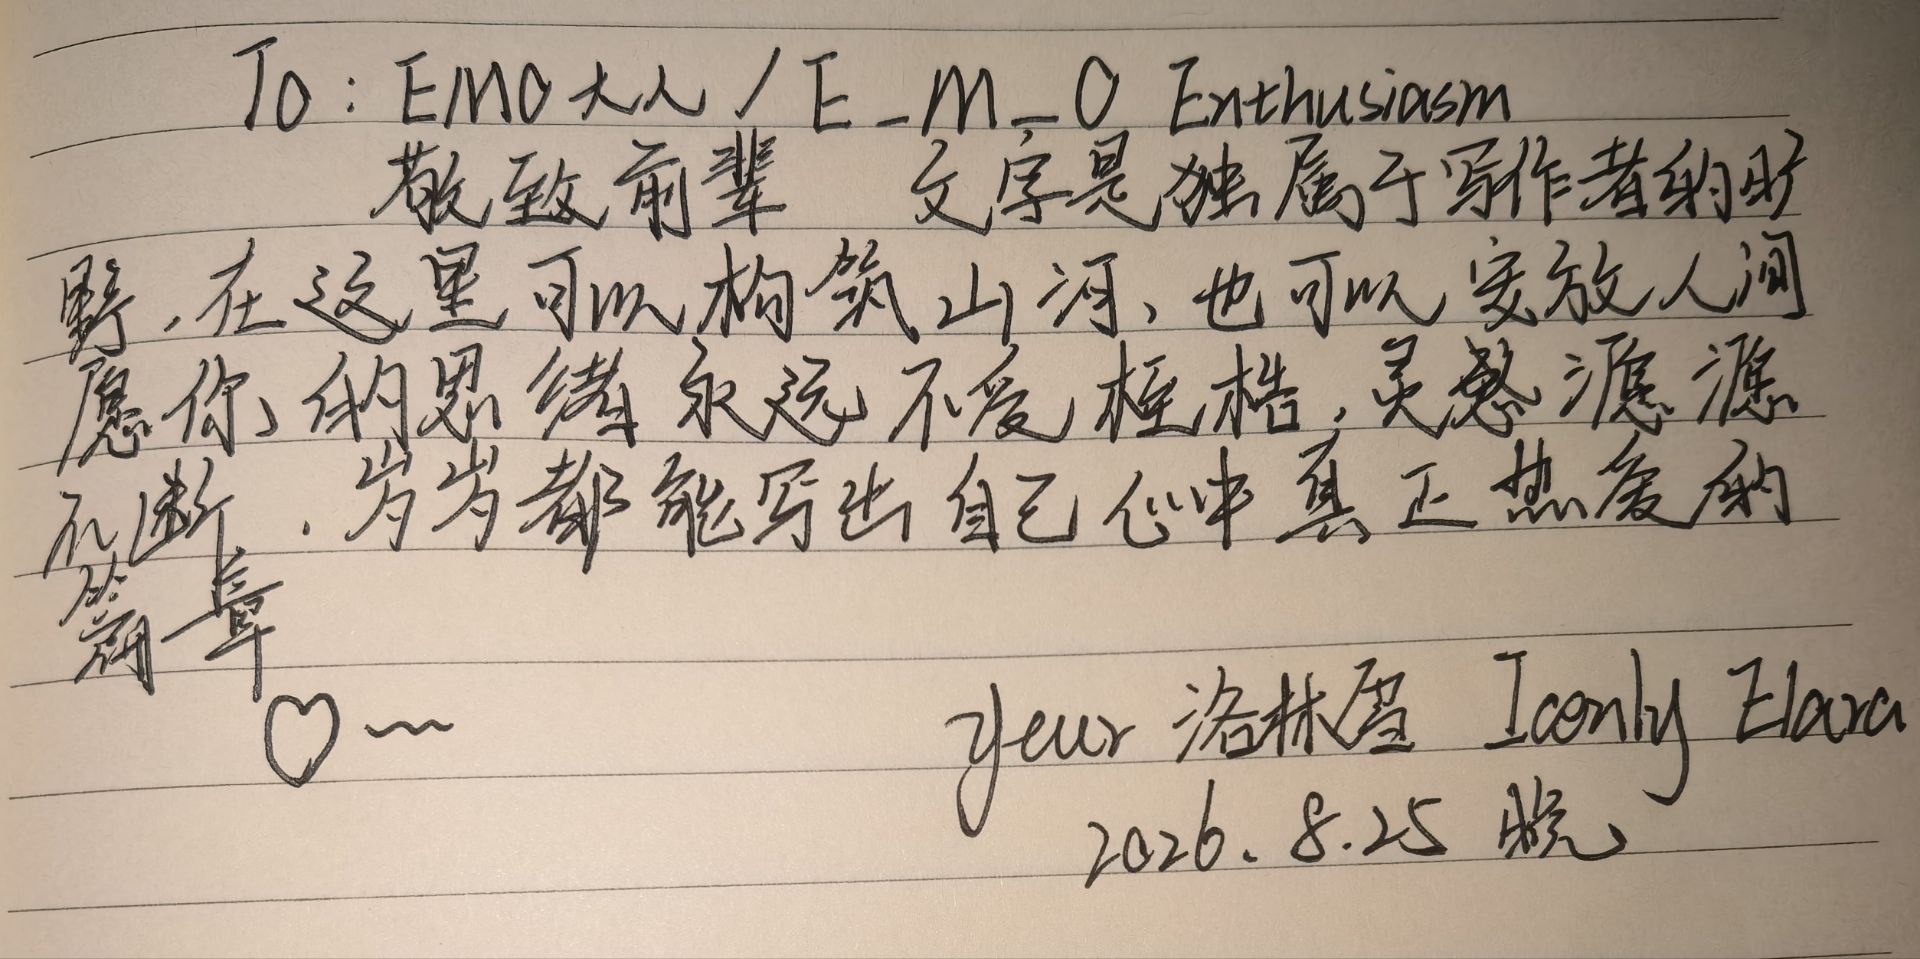 To: EMO大人 / E_M_O Enthusiasm
敬致前辈 文字是独属于写作者的旷
野，在这里可以构筑山河、也可以安放人间
愿你的思绪永远不受桎梏，灵感源源
不断，岁岁都能写出自己心中真正热爱的
篇章
your 洛林雪 Iconly Elara
2026.8.25 晚